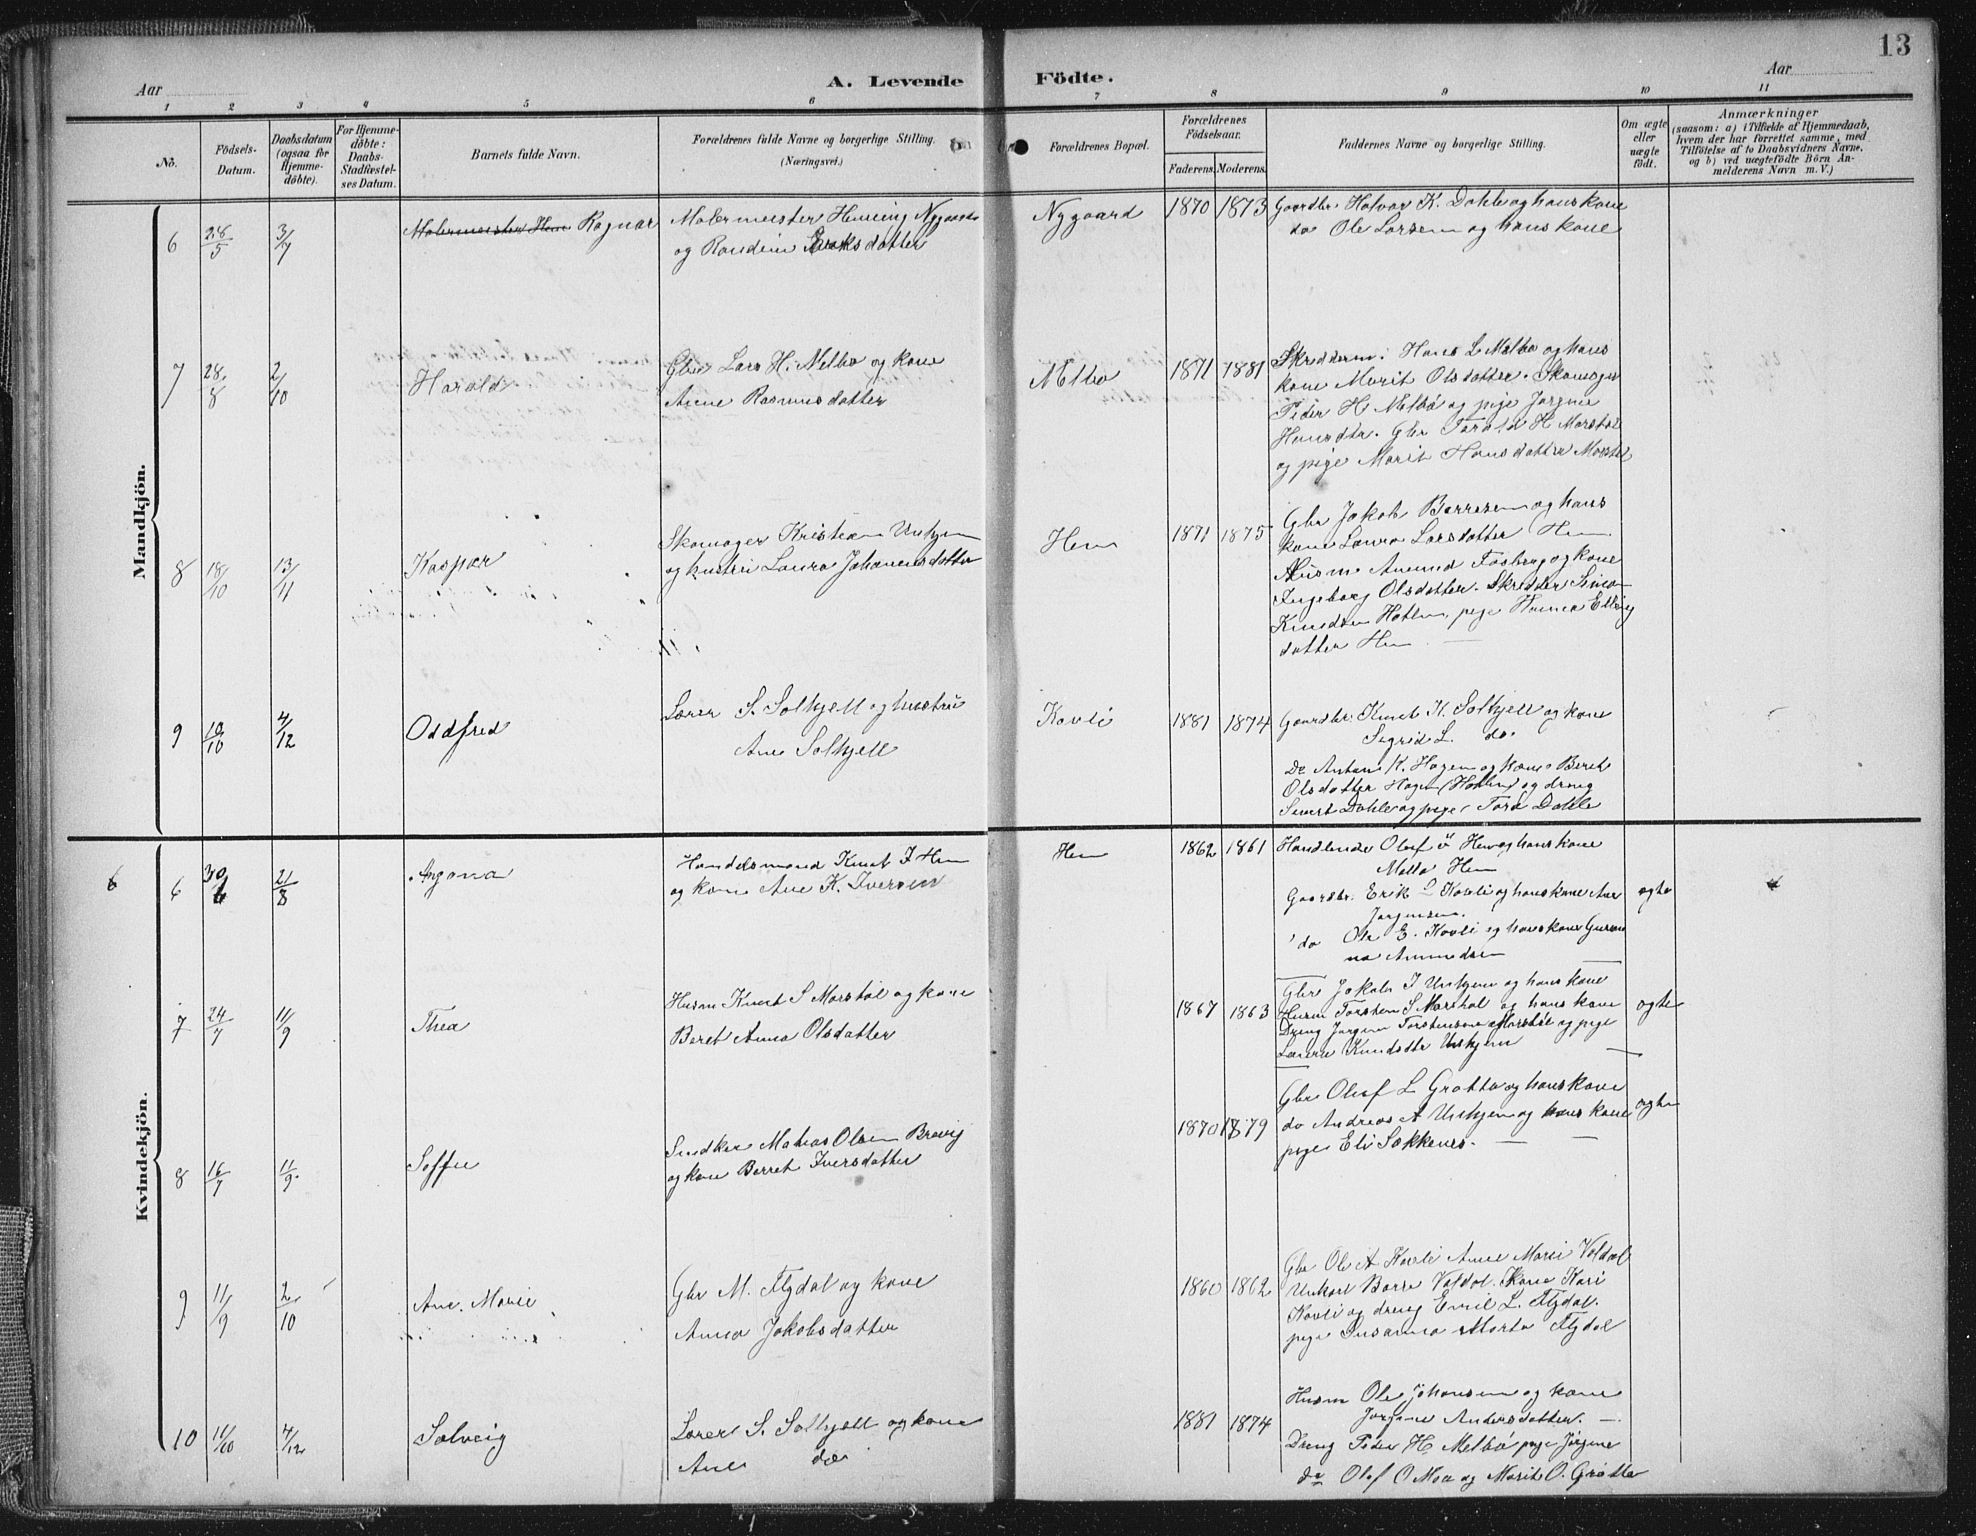 13
A. Levende Födte.
Aar
Aar
1 2 3 4 5 6 7 8 9 10 11
No.
Födsels-Datum.
Daabsdatum (ogsaa for Hjemme-döbte).
For Hjemme-döbte: Daabs-Stadfæstel-ses Datum.
Barnets fulde Navn.
Forældrenes fulde Navne og borgerlige Stilling. (Næringsvei.)
Forældrenes Bopæl.
Forældrenes Födselsaar.
Faderens. Moderens.
Faddernes Navne og borgerlige Stilling.
Om ægte eller uægte födt.
Anmærkninger
(saasom: a) i Tilfælde af Hjemmedaab,
hvem der har forrettet samme, med
Tilföielse af to Daabsvidners Navne,
og b) ved uægtefödte Börn An-
melderens Navn m. V.)
Mandkjön.
6 28/5 3/7 Malermeister Hem Ragnar
Malermeister Henning Nygaard
og Randine Eriksdatter
Nygaard 1870 1873
Gaardbr. Halvor K. Dahle og hans kone
do Ole Larsen og hans kone
7 28/8 2/10 Harald
Gbr Lars H. Melbø og kone
Anne Rasmusdatter
Melbø 1871 1881
Skredderm. Hans L Melbø og hans
kone Marit Olsdatter. Skomager
Peder H Melbö og pige Jørgine
Hansdtr. Gbr Torald H Morstøl
og pige Marit Hansdatter Morstøl
8 18/10 13/11 Kaspar
Skomager Kristian Unhjem
og hustru Laura Johannesdatter
Hem 1871 1875
Gbr Jakob Berresen og hans
kone Laura Larsdatter Hem
Husm Amund Fosberg og kone
Ingeborg Olsdatter. Skredder Simon
Knudsen Hatlen, pige Hanna Elling
datter Hem
9 10/10 4/12 Oddfred
Lærer S. Solhjell og hustru
Ane Solhjell
Kavli 1881 1874
Gaardbr. Knut K. Solhjell og kone
Sigrid L. do.
Do Antan K. Hagen og kone Beret
Olsdatter Hagen (Hatlen) og dreng
Sivert Dahle og pige Tora Dahle
Kvindekjön.
6 6 30/6 21/8 Angona
Handelsmand Knut I Hem
og kone Ane K. Iversen
Hem 1862 1861
Handlende Oluf I Hem og hans kone
Malla Hem
Gaardbr. Erik L Kavli og hans kone Ane
Jørgensen.
do Ole E. Kavli og hans kone Guran
na Amundsen
ægte
7 24/7 11/9 Thea
Husm Knut S Morstøl og kone
Beret Anna Olsdatter
1867 1863
Gbr Jakob I Unhjem og hans kone
Husm Torsten S Morstøl og hans kone
Dreng Jørgen Torstensen Morstøl og pige
Laura Knudsdtr Unhjem
ægte
8 16/7 11/9 Soffie
Snedker Matias Olsen Brevig
og kone Berret Iversdatter
1870 1879
Gbr Oluf L Grøtta og hans kone
do Andreas A Unhjem og hans kone
pige Eli Sækkenes.
ægte
9 11/9 2/10 Ane Marie
Gbr M. Flydal og kone
Anna Jakobsdatter
1860 1862
Gbr Ole A Kavli Ane Marie Valdal
Unkarl Børre Valdal. Kone Kari
Kavli og dreng Emil L. Flydal.
pige Susanna Marta Flydal
10 11/10 4/12 Solveig
Lærer S. Solhjell og kone
Ane do
1881 1874
Husm Ole Johansen og kone
Jørgine Andersdatter.
Dreng Peder H. Melbö pige Jørgine
do Olof O Moa og Marit O. Grøtta